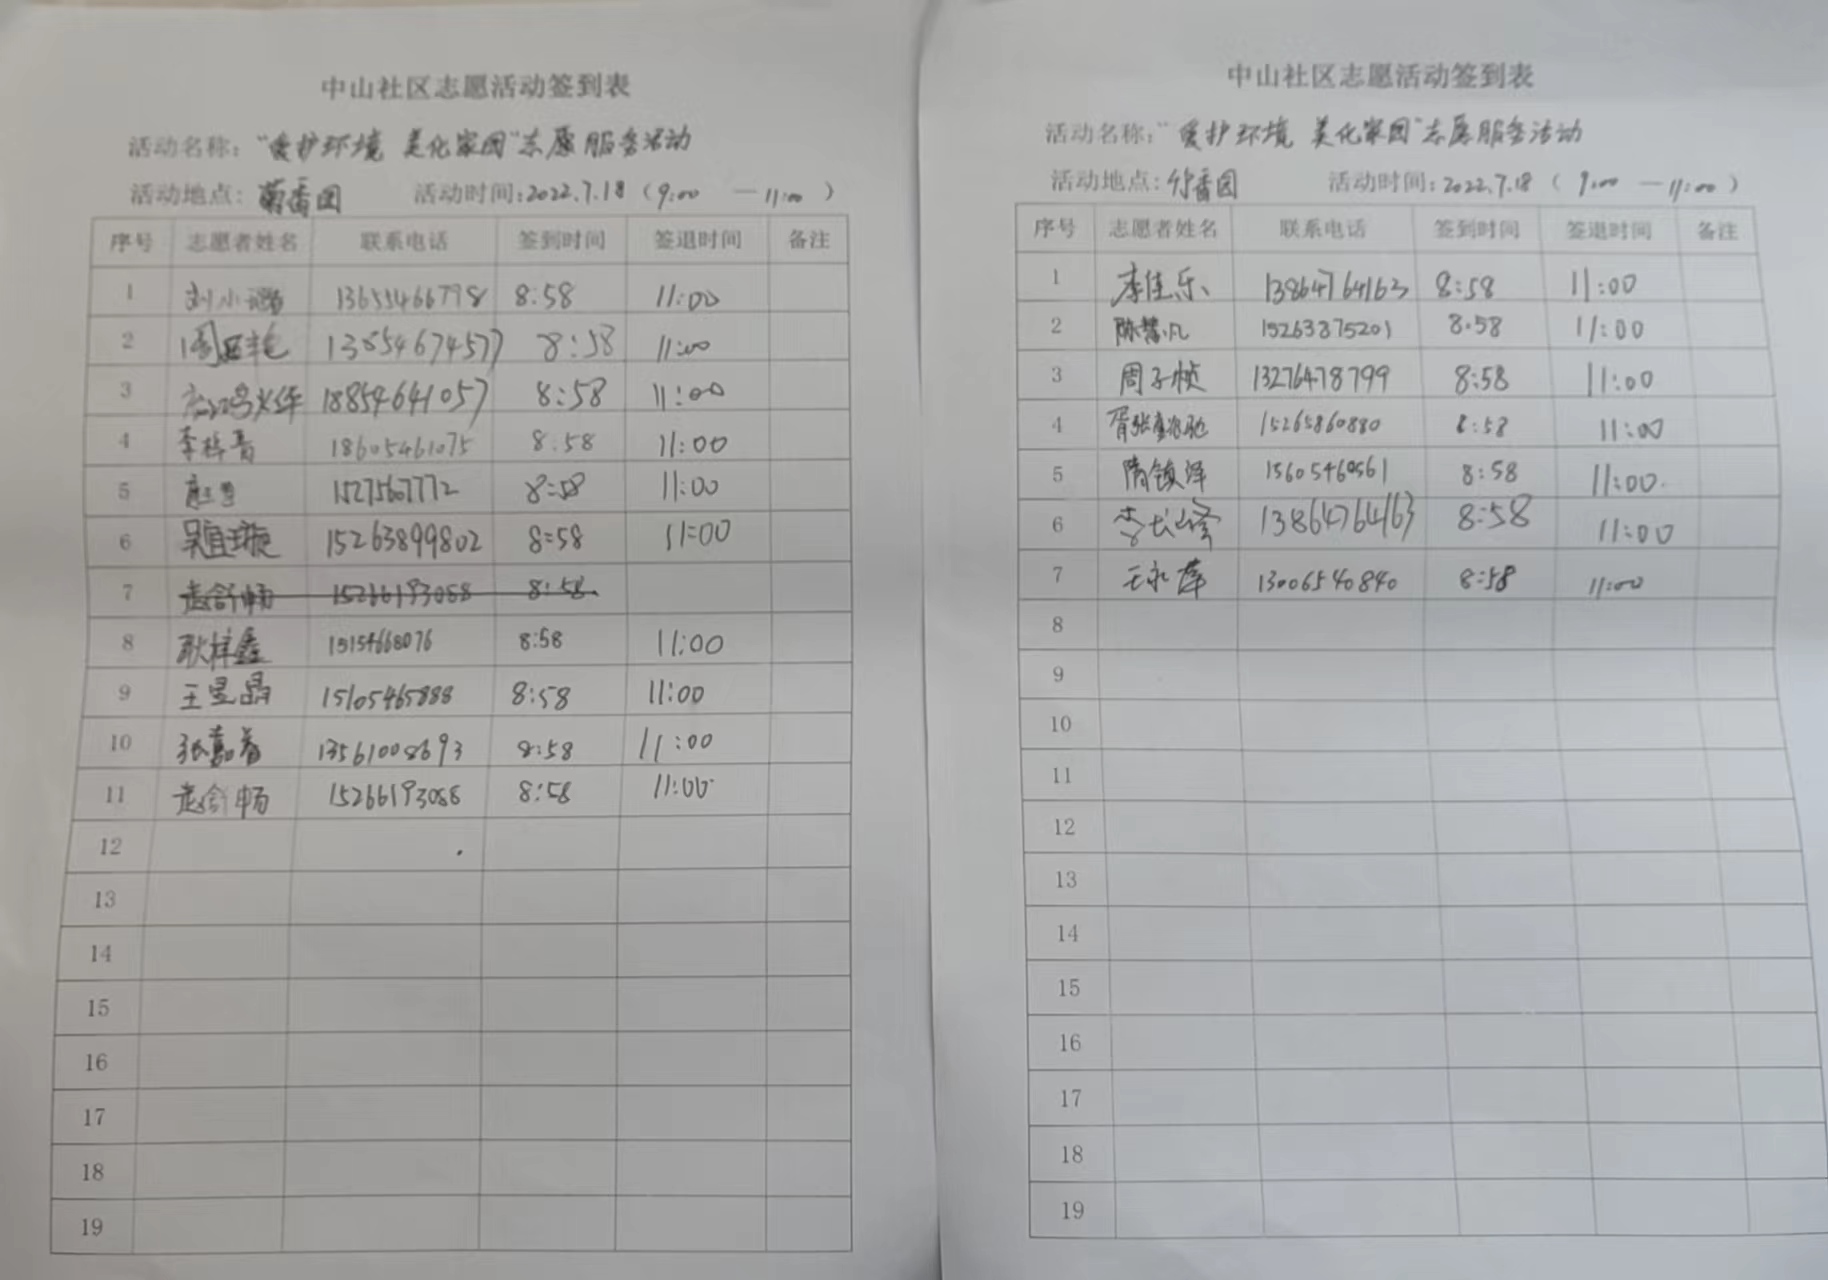 中山社区志愿活动签到表
活动名称："爱护环境 美化家园"志愿服务活动
活动地点： 活动时间:2022.7.18（9:00 — 11:00）
序号 志愿者姓名 联系电话 签到时间 签退时间 备注
1 刘小 13655466798 8:58 11:00
2 13854674577 8:58 11:00
3 18854641057 8:58 11:00
4 李梓 18605461075 8:58 11:00
5 8:58 11:00
6 吴宜璇 15263899802 8:58 11:00
7 赵舒畅 15266193088 8:58
8 耿梓鑫 8:58 11:00
9 王昱晶 15105465888 8:58 11:00
10 张嘉 13561008693 8:58 11:00
11 赵舒畅 15266193088 8:58 11:00
12
13
14
15
16
17
18
19
中山社区志愿活动签到表
活动名称："爱护环境 美化家园"志愿服务活动
活动地点: 活动时间:2022.7.18（9:00 — 11:00）
序号 志愿者姓名 联系电话 签到时间 签退时间 备注
1 李佳乐 13864764163 8:58 11:00
2 陈慧凡 15263875201 8:58 11:00
3 周子桢 13276478799 8:58 11:00
4 15265860880 8:58 11:00
5 隋镇泽 15605460561 8:58 11:00
6 李长峰 13864764163 8:58 11:00
7 王永萍 13006540840 8:58 11:00
8
9
10
11
12
13
14
15
16
17
18
19